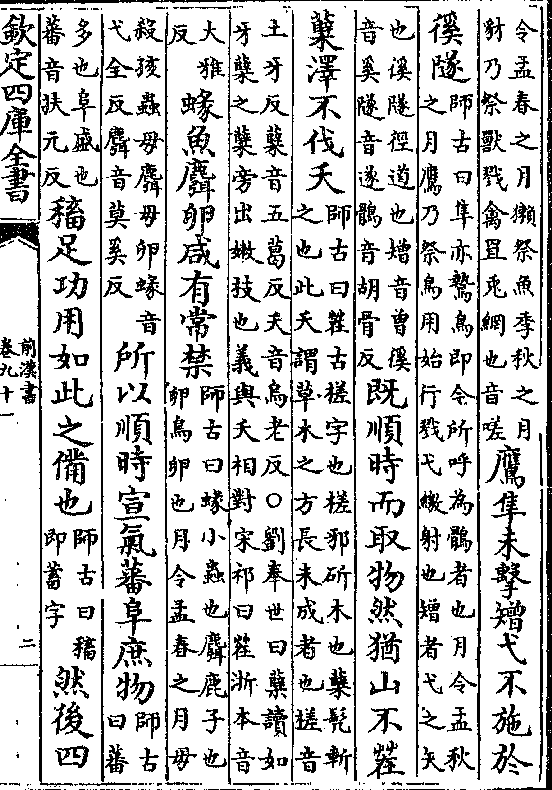 令孟春之月獺祭魚季秋之月
豺乃祭獸戮禽罝兎網也音嗟
鷹隼未擊矰弋不施於
徯隧
師古曰隼亦鷙鳥即今所呼為鶻者也月令孟秋
之月鷹乃祭鳥用始行戮弋繳射也矰者弋之矢
也徯隧徑道也矰音曾徯
音奚隧音遂鶻音胡骨反
既順時而取物然猶山不茬
蘖澤不伐夭
師古曰茬古槎字也槎邪斫木也蘖髡斬
之也此夭謂草木之方長未成者也槎音
土牙反蘖音五葛反夭音烏老反○劉奉世曰蘖讀如
牙蘖之蘖旁出嫩枝也義與夭相對宋祁曰茬浙本音
大雅
反
蝝魚麛卵咸有常禁
師古曰蝝小蟲也麛鹿子也
卵鳥卵也月令孟春之月毋
殺孩蟲毋麛毋卵蝝音
弋全反麛音莫奚反
所以順時宣氣蕃阜庶物
師古
曰蕃
多也阜盛也
蕃音扶元反
稸足功用如此之備也
師古曰稸
即蓄字
然後四
欽定四庫全書
前漢書
卷九十一
二